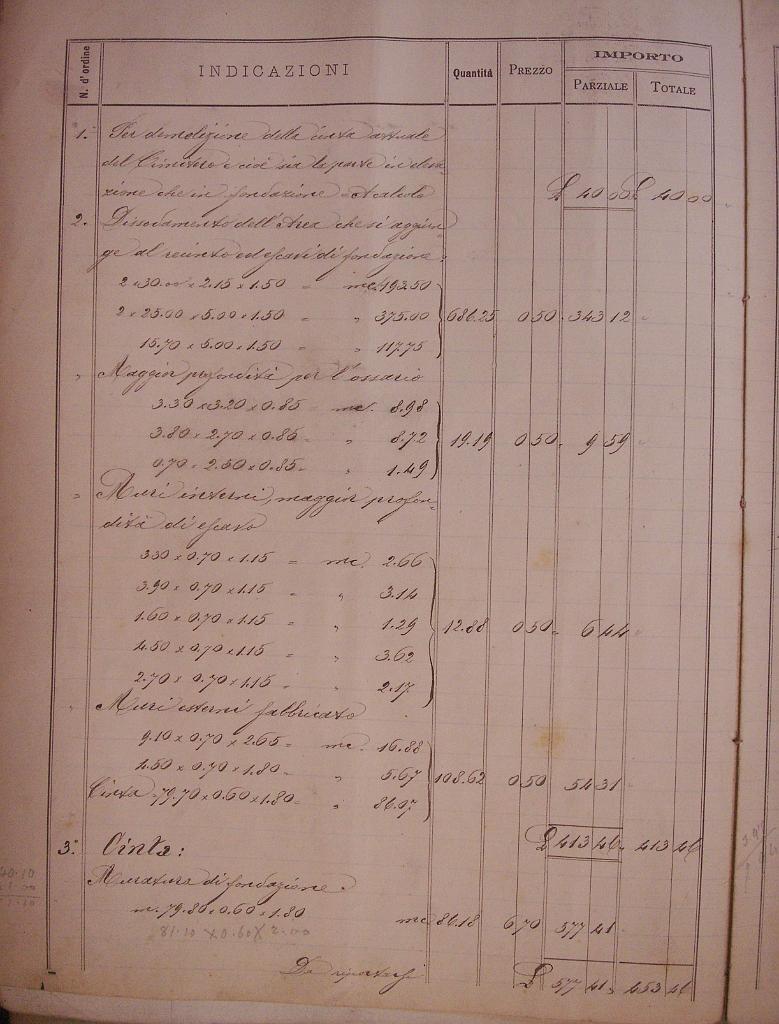 N. d'ordine INDICAZIONI Quantità PREZZO IMPORTO
PARZIALE TOTALE
1. Per demolizione della cinta attuale
del Cimitero e cioè sia la parte in eleva-
zione che in fondazione. A calcolo £ 40 00 £ 40 00
2. Dissodamento dell'Area che si aggiun-
ge al recinto ed escavi di fondazione:
2 x 30.00 x 2.15 x 1.50 = mc. 193.50
2 x 25.00 x 5.00 x 1.50 = " 375.00 686.25 0 50 343 12
15.70 x 5.00 x 1.50 = " 117.75
" Maggior profondità per l'ossario
3.30 x 3.20 x 0.85 = mc. 8.98
3.80 x 2.70 x 0.85 = " 8.72 19.19 0 50 9 59
0.70 x 2.50 x 0.85 = " 1.49
" Muri interni, maggior profon-
dità di escavo
3.30 x 0.70 x 1.15 = mc. 2.66
3.90 x 0.70 x 1.15 = " 3.14
1.60 x 0.70 x 1.15 = " 1.29 12.88 0 50 6 44
4.50 x 0.70 x 1.15 = " 3.62
2.70 x 0.70 x 1.15 = " 2.17
" Muri esterni fabbricato
9.10 x 0.70 x 2.65 = mc. 16.88
4.50 x 0.70 x 1.80 = " 5.67 108.62 0 50 54 31
Cinta 79.70 x 0.60 x 1.80 = " 86.07
£ 413 46 " 413 46
3. Cinta:
Muratura di fondazione.
m. 79.80 x 0.60 x 1.80 mc 86.18 6 70 577 41
81.10 x 0.60 x 2.00
Da riportarsi £ 577 41 " 453 46